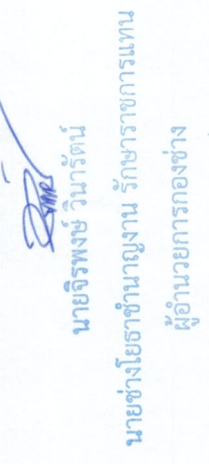 นายจิรพงษ์ วินารัตน์
นายช่างโยธาชำนาญงาน รักษาราชการแทน
ผู้อำนวยการกองช่าง